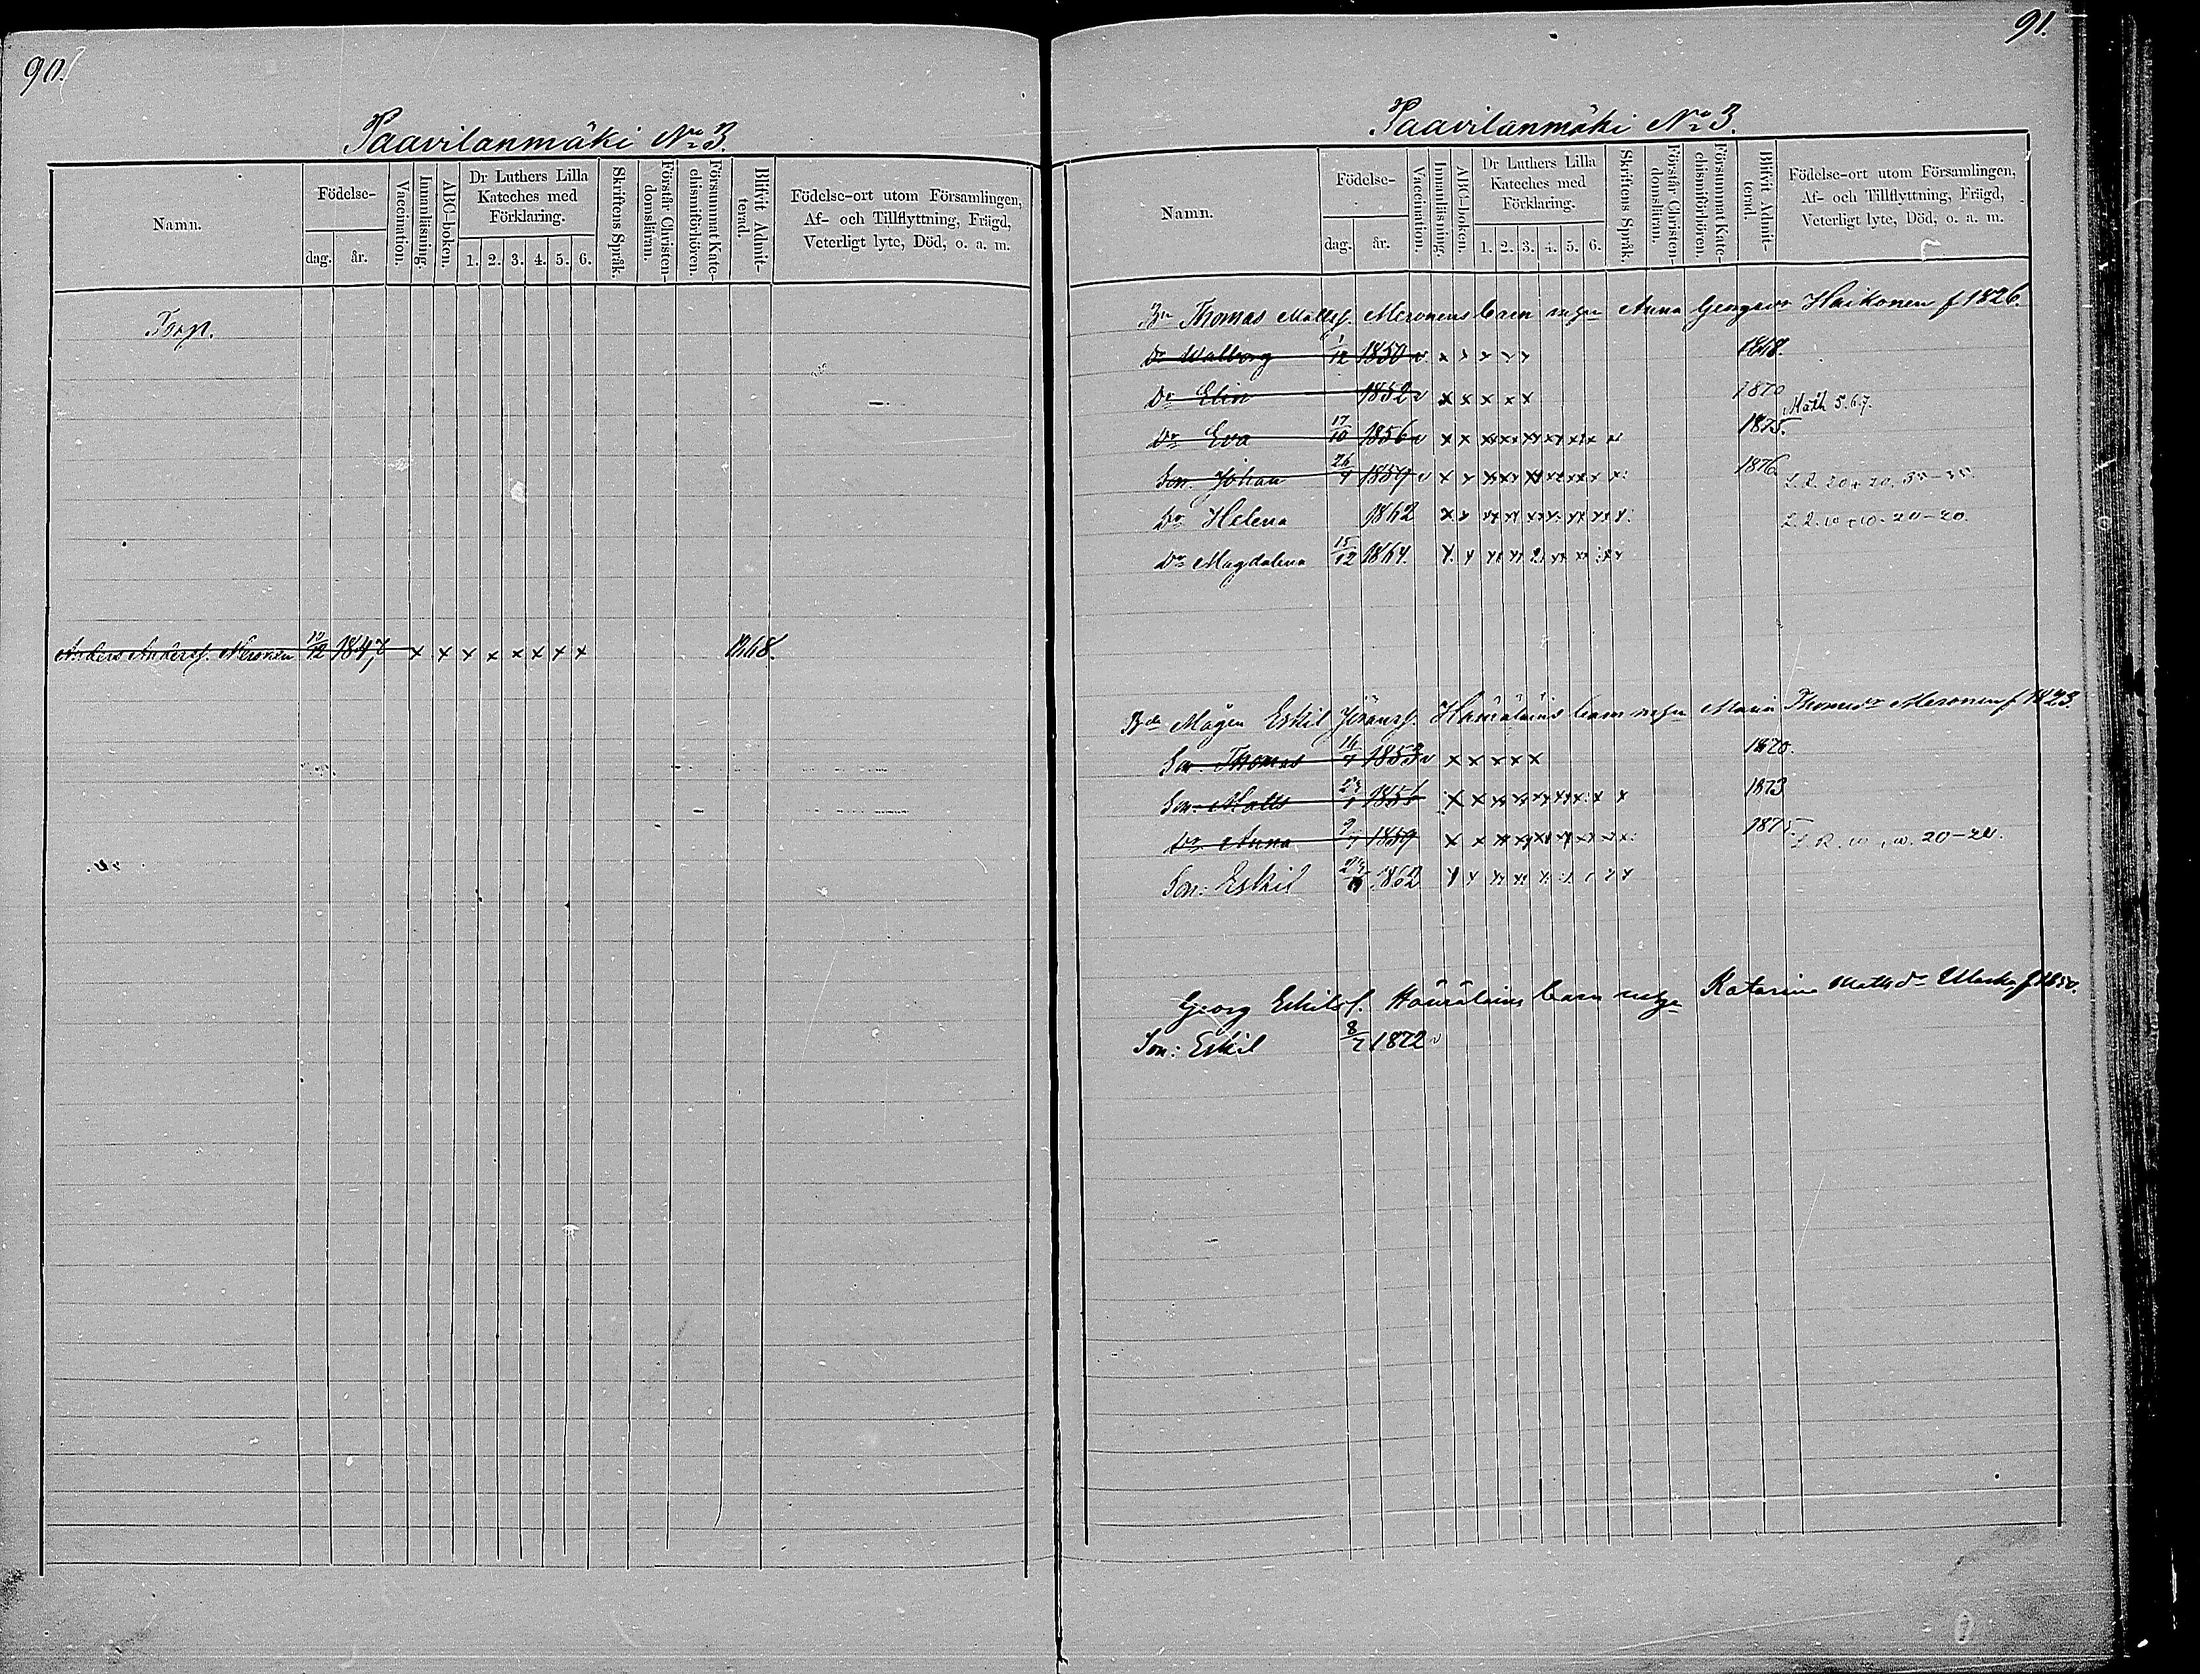 90.
Paavilanmäki No 3.
Namn.
Födelse-
dag.
år.
Vaccination.
Innanläsning.
ABC-boken.
Dr Luthers Lilla
Kateches med
Förklaring.
1. 2. 3. 4. 5. 6.
Skriftens Språk.
Förstår Christen-
domsläran.
Försummat Kate-
chismiförhören.
Blifvit Admit-
terad.
Födelse-ort utom Församlingen,
Af- och Tillflyttning, Frägd,
Veterligt lyte, Död, o. a. m.
Torp.
Anders Andersf. Meronen 12/12 1847 v x x x x x x x x 1868.
91.
Paavilanmäki No 3.
Namn.
Födelse-
dag.
år.
Vaccination.
Innanläsning.
ABC-boken.
Dr Luthers Lilla
Kateches med
Förklaring.
1. 2. 3. 4. 5. 6.
Skriftens Språk.
Förstår Christen-
domsläran.
Försummat Kate-
chismiförhören.
Blifvit Admit-
terad.
Födelse-ort utom Församlingen,
Af- och Tillflyttning, Frägd,
Veterligt lyte, Död, o. a. m.
Bn Thomas Mattsf. Meronens barn m hu Anna Georgsdr Haikonen f 1826.
Dr Walborg 1/12 1850 v x x x x x 1868.
Dr Elin 1852 v x x x x x 1870
Math 5.6.7.
Dr Eva 17/10 1856 v x x xx xx xx xx xx xx 1875.
Son Johan 26/4 1859 v x x xx xx xx xx xx x x 1876
Dr Helena 1862 x x xx xx xx xx xx xx x 20-20.
Dr Magdalena 15/12 1864. x x xx xx xx xx xx
Bde Mågen Eskil Jöransf. Hämäläins barn m hu Maria Thomædr Meronen f 1823.
Son Thomas 16/4 1853 v x x x x x 1870.
Son Matts 1856 x x xx xx xx xx xx x x 1873
Dr Anna 9/7 1859 x x xx xx xx xx xx x x 1875. 20-20.
Son: Eskil 1862 x x xx xx x x
Georg Eskilsf. Hämäläins barn m hu Katarina Mattsdr f 1850.
Son: Eskil 8/7 1872 v